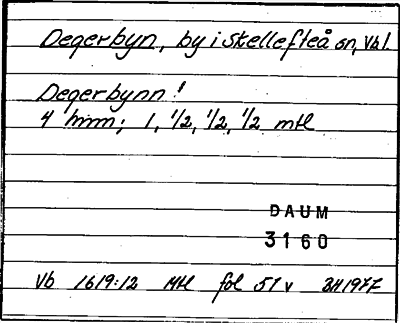 Degerbyn, by i Skellefteå sn, Vbl.
Degerbynn!
4 hmm; 1, 1/2, 1/2, 1/2 mtl
DAUM
3160
Vb 1619:12 Mtl fol 51 v BH 1977